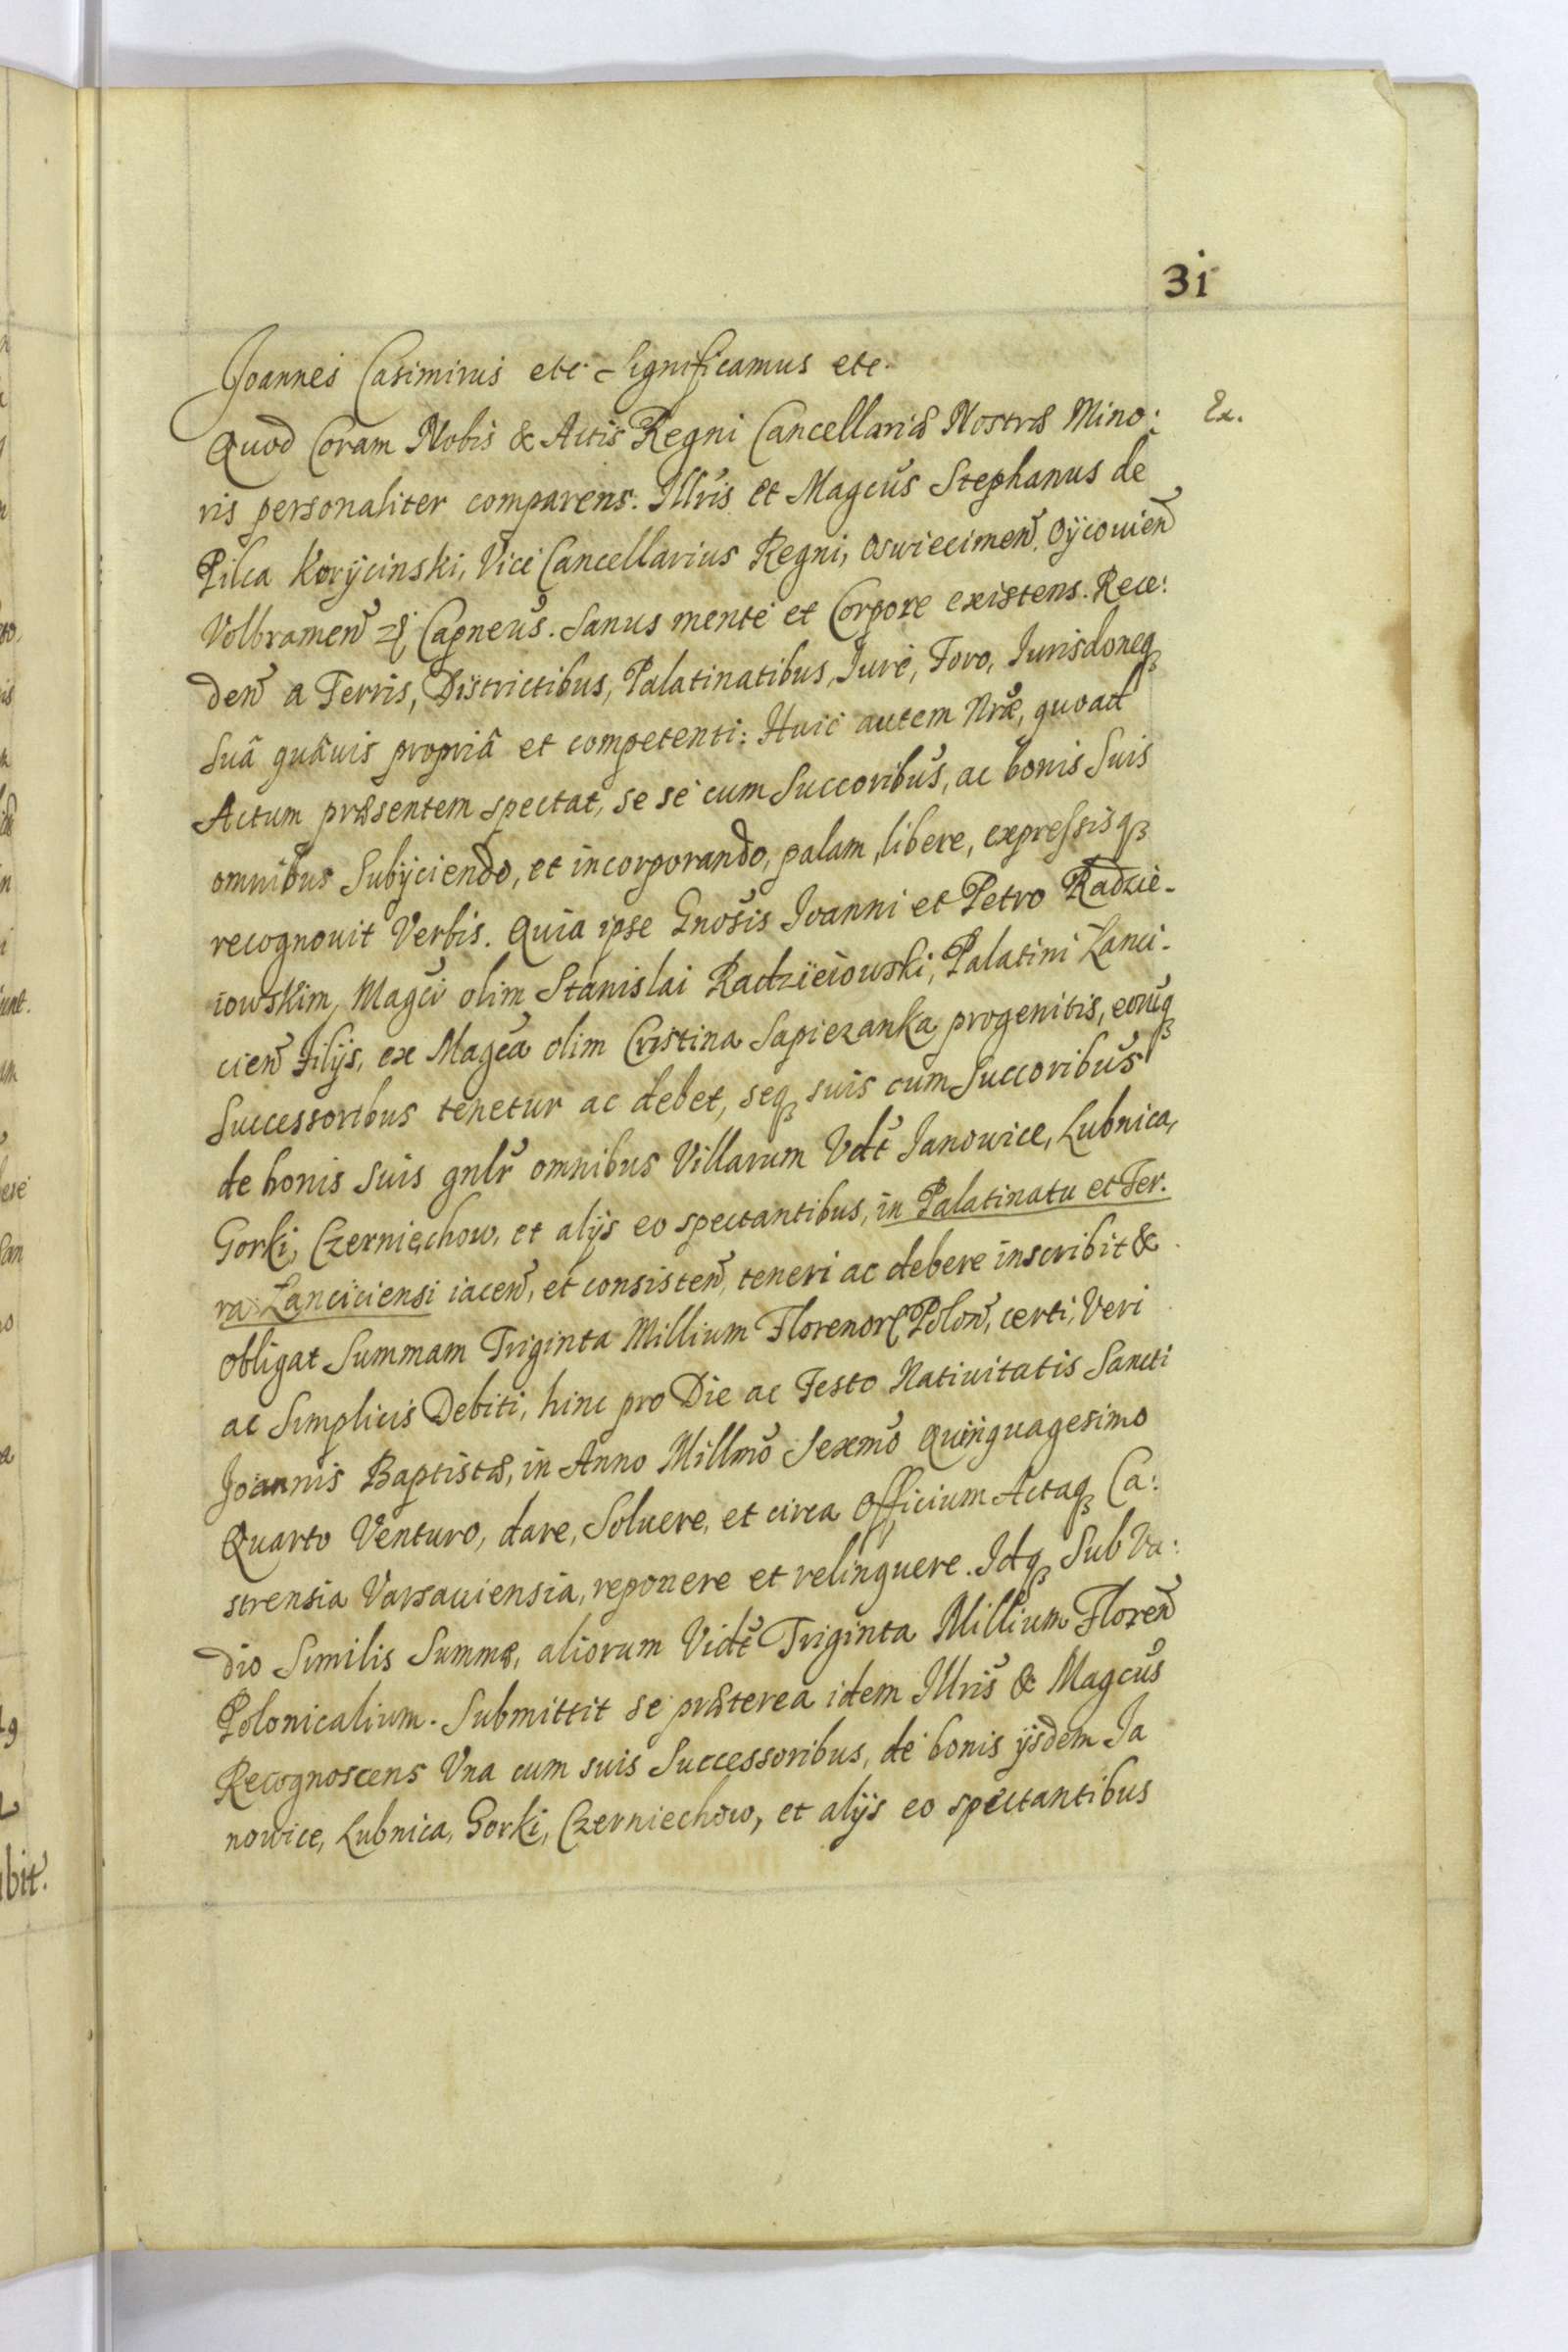 31
Joannes Casimirus etc. Significamus etc.
Quod Coram Nobis & Actis Regni Cancellariæ Nostræ Mino: Ex.
ris personaliter comparens. Illris et Magcus Stephanus de
Pilca Korÿcinski, Vice Cancellarius Regni, Oswiecimen̄. Oÿcouien̄
Volbramen̄ Capneus. Sanus mente et Corpore existens. Rece:
den̄ a Terris, Districtibus, Palatinatibus, Jure, Foro, Jurisdoneq₃
Suâ quâuis propriâ et competenti: Huic autem Nræ, quoad
Actum præsentem spectat, se se cum Succoribus, ac bonis Suis
omnibus Subÿciendo, et incorporando, palam, libere, expressisq₃
recognouit Verbis. Quia ipse Gnosis Joanni et Petro Radzie-
iowskim, Magci olim Stanislai Radzieiowski, Palatini Lanci-
cien̄ Filÿs, ex Magca olim Cristina Sapiezanka progenitis, eorūq₃
Successoribus tenetur ac debet, seq₃ suis cum Succoribus
de bonis suis gnlr omnibus Villarum Vdt Janowice, Lubnica,
Gorki, Czerniechow, et alÿs eo spectantibus, in Palatinatu et Ter.
ra Lanciciensi iacen̄, et consisten̄, teneri ac debere inscribit &
obligat Summam Triginta Millium Florenor Polon̄, certi, Veri
ac Simplicis Debiti, hinc pro Die ac Festo Natiuitatis Sancti
Joannis Baptistæ, in Anno Millmo Sexmo Quinquagesimo
Quarto Venturo, dare, Soluere, et circa Officium Actaq₃ Ca:
strensia Varsauiensia, reponere et relinquere. Idq₃ Sub Va:
dio Similis Summæ, aliorum Vidt Triginta Millium Floren̄
Polonicalium. Submittit se præterea idem Illris & Magcus
Recognoscens Vna cum suis Successoribus, de bonis ÿsdem Ja
nowice, Lubnica, Gorki, Czerniechow, et alÿs eo spectantibus